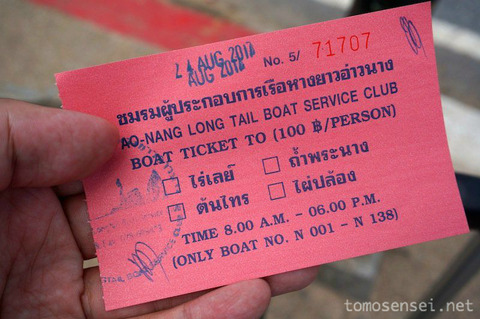 AUG 2017
AUG 2017
No. 5/ 71707
ชมรมผู้ประกอบการเรือหางยาวอ่าวนาง
AO-NANG LONG TAIL BOAT SERVICE CLUB
BOAT TICKET TO (100 ฿/PERSON)
ไร่เลย์ ถ้ำพระนาง
ต้นไทร ไผ่ปล้อง
TIME 8.00 A.M. – 06.00 P.M.
(ONLY BOAT NO. N 001 – N 138)
tomosensei.net